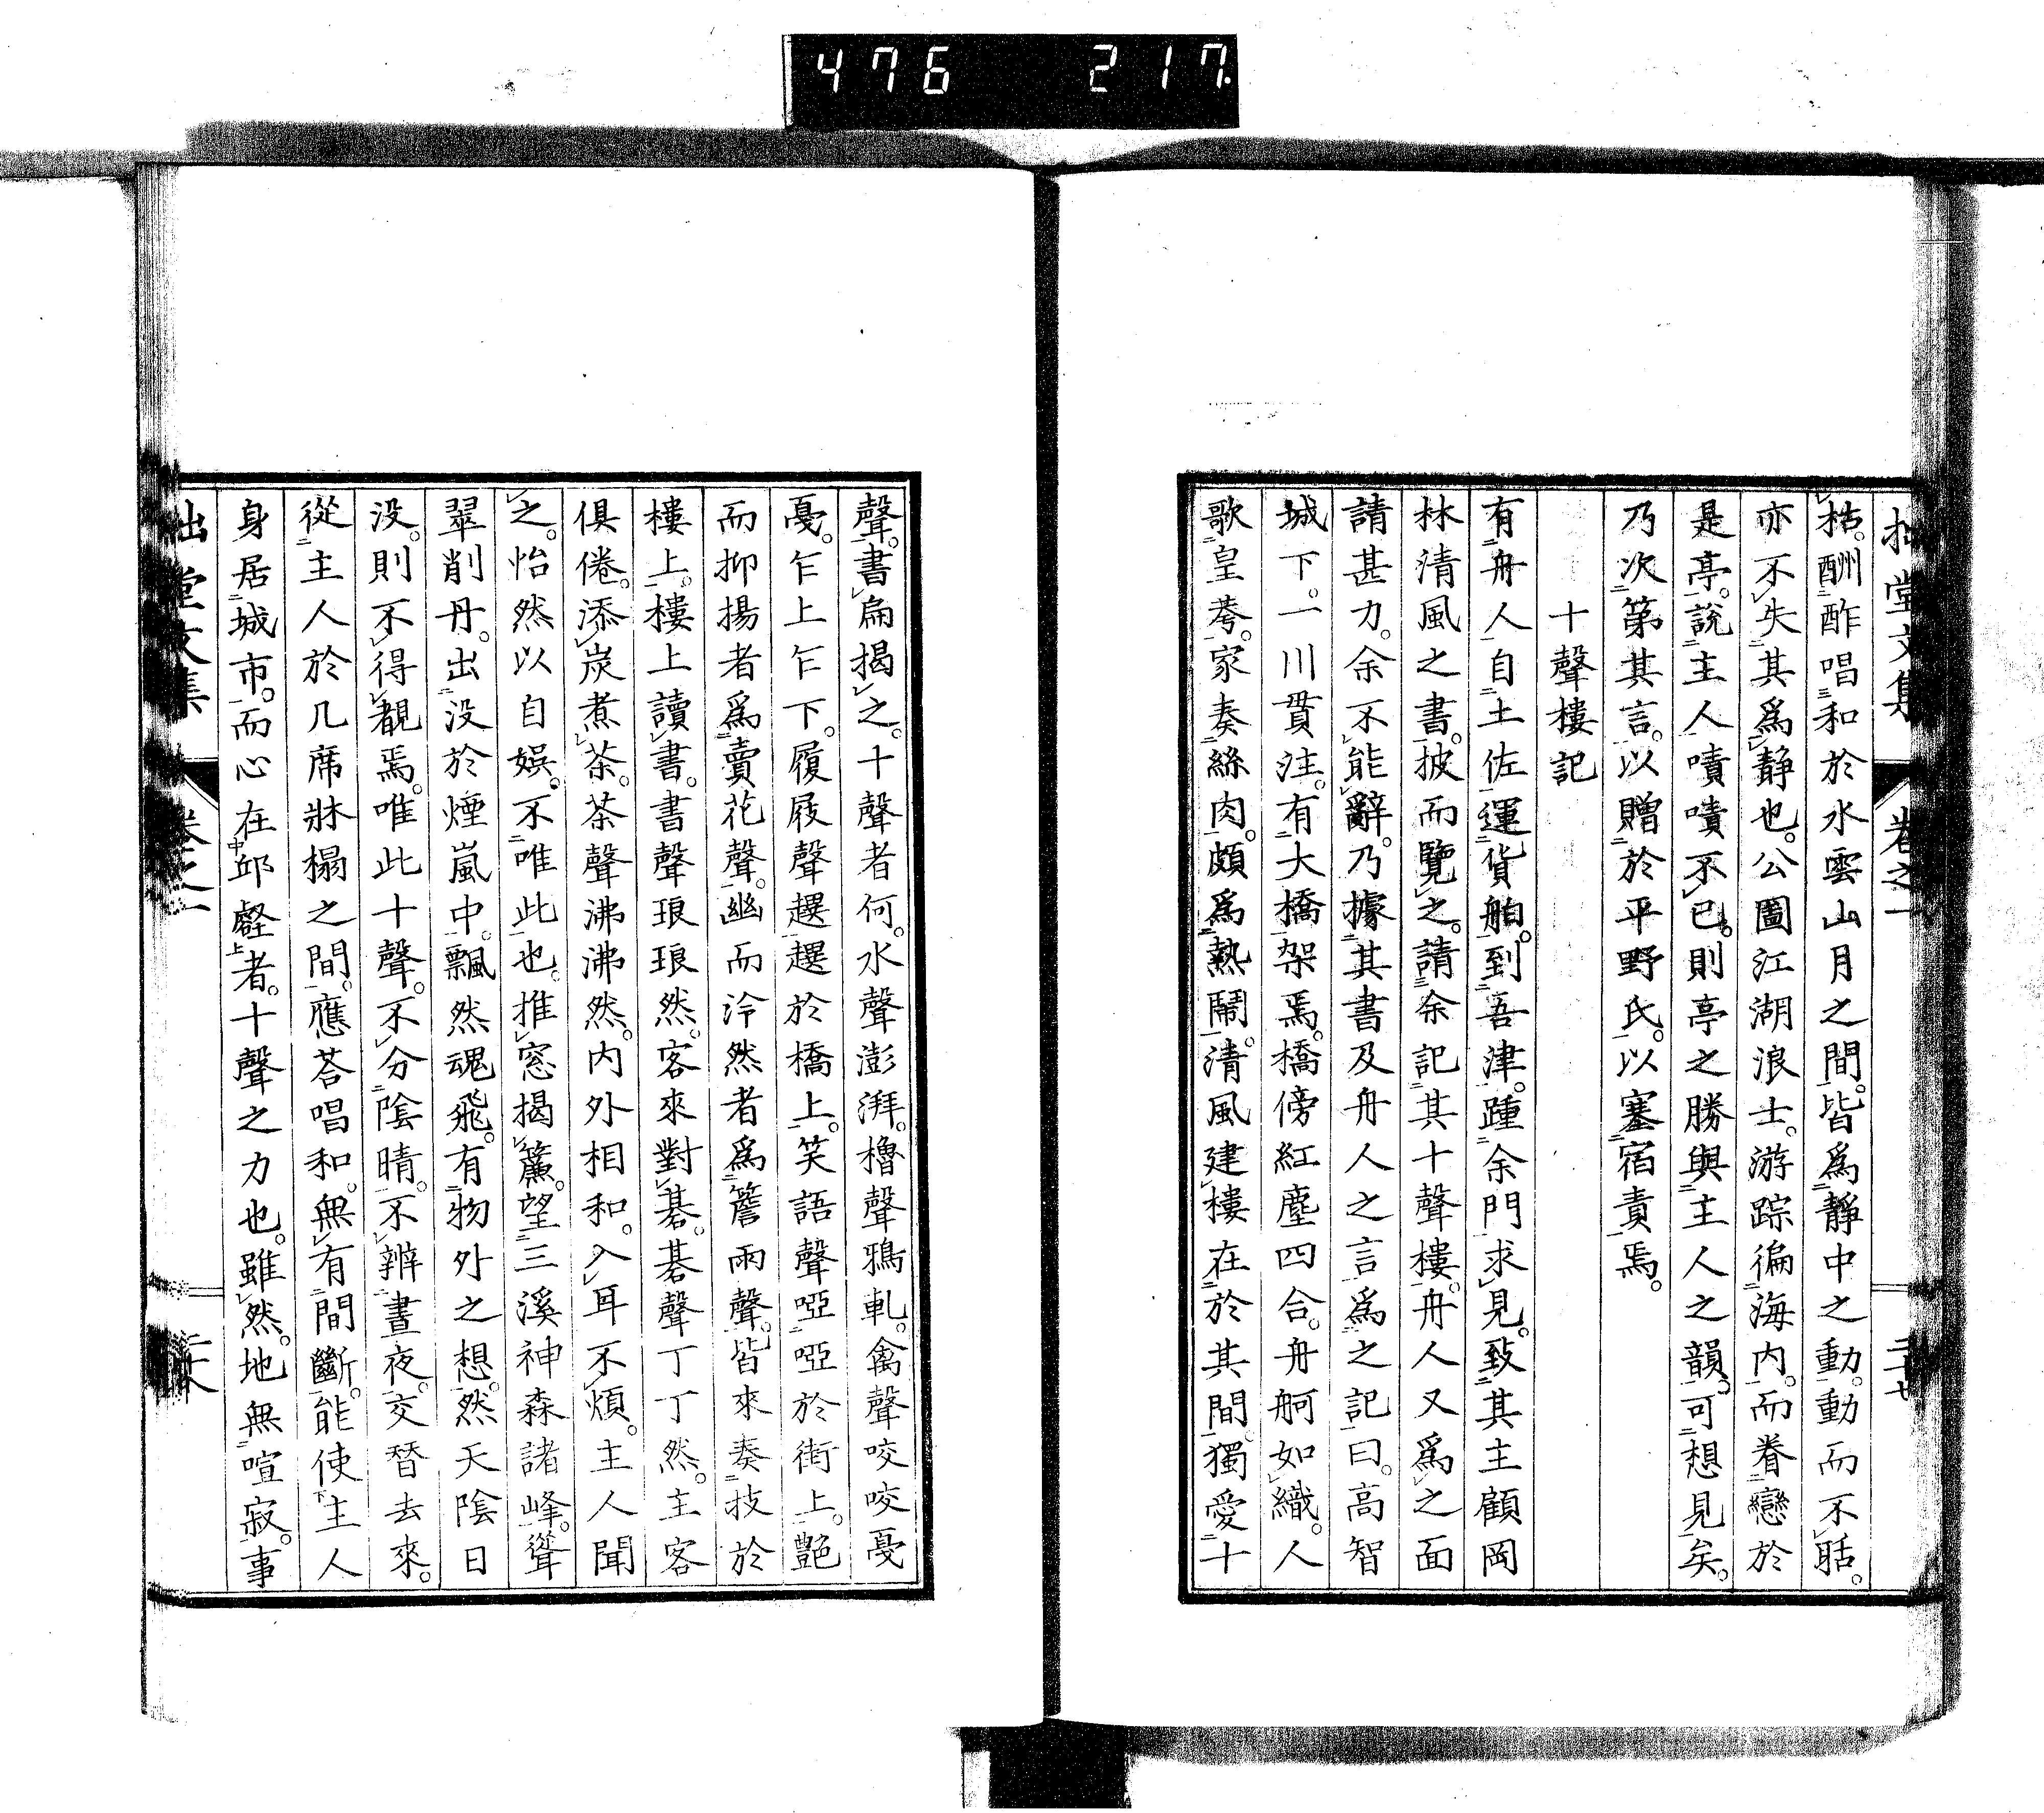 476 217
拙堂文集 卷之一 二十七
枯。酬酢唱和於水雲山月之間。皆爲靜中之動。動而不聒。
亦不失其爲靜也。公圖江湖浪士。游踪徧海内。而眷戀於
是亭。說主人嘖嘖不已。則亭之勝與主人之韻。可想見矣。
乃次第其言。以贈於平野氏。以塞宿責焉。
十聲樓記
有舟人自土佐運貨舶。到吾津。踵余門求見。致其主顧岡
林清風之書。披而覽之。請余記其十聲樓。舟人又爲之面
請甚力。余不能辭。乃據其書及舟人之言爲之記曰。高智
城下。一川貫注。有大橋架焉。橋傍紅塵四合。舟舸如織。人
歌皇荂。家奏絲肉。頗爲熱鬧。清風建樓在於其間。獨愛十
聲。書扁揭之。十聲者何。水聲澎湃。櫓聲鴉軋。禽聲咬咬戞
戞。乍上乍下。履屐聲趯趯於橋上。笑語聲啞啞於街上。艶
而抑揚者爲賣花聲。幽而泠然者爲簷雨聲。皆來奏技於
樓上。樓上讀書。書聲琅琅然。客來對碁。碁聲丁丁然。主客
俱倦。添炭煮茶。茶聲沸沸然。内外相和。入耳不煩。主人聞
之。怡然以自娯。不唯此也。推窓揭簾。望三溪神森諸峰。聳
翠削丹。出没於煙嵐中。飄然魂飛。有物外之想。然天陰日
没。則不得覩焉。唯此十聲。不分陰晴。不辨晝夜。交替去來。
從主人於几席牀榻之間。應荅唱和。無有間斷。能使主人
身居城市。而心在邱壑者。十聲之力也。雖然。地無喧寂。事
拙堂文集 卷之一 二十八